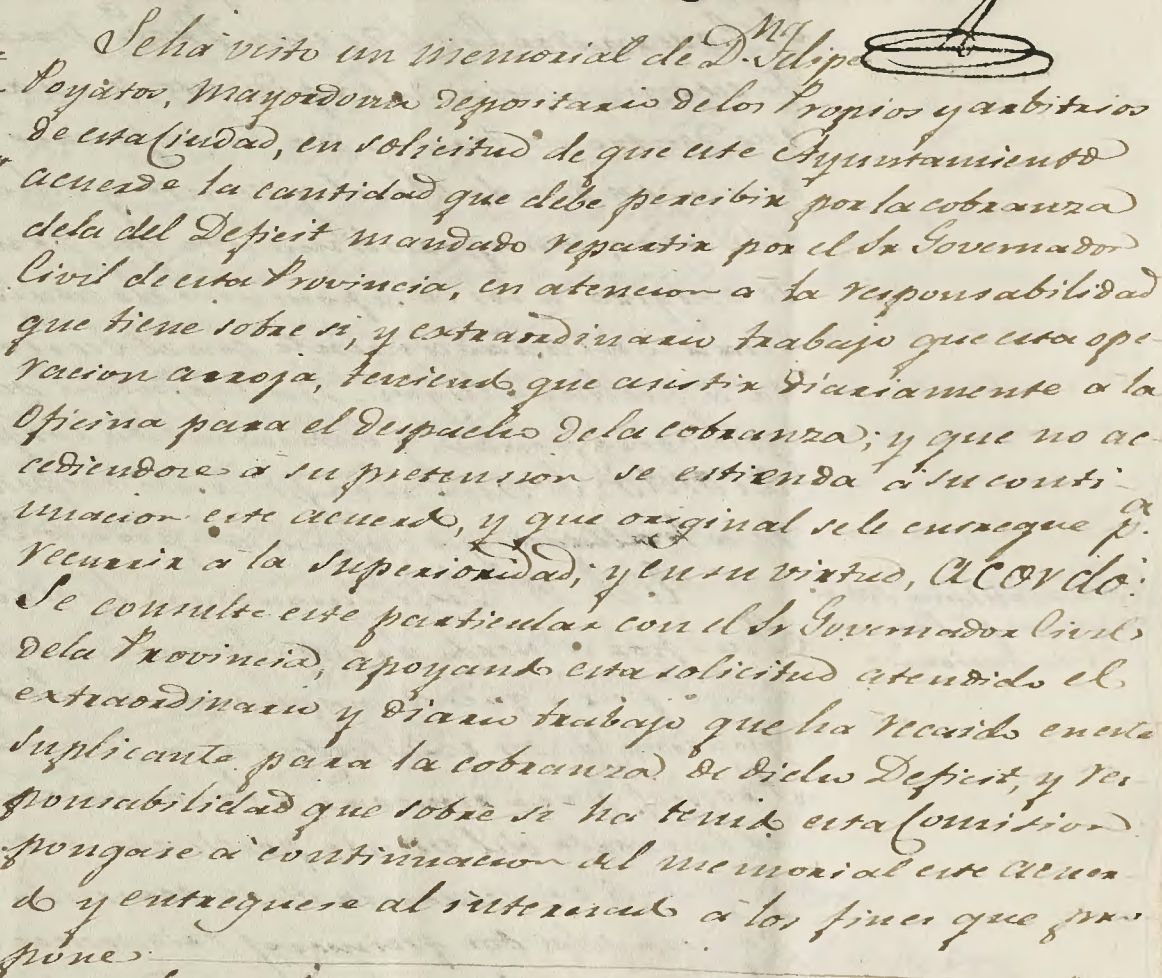 Se ha visto un memorial de D. Felipe
Poyatos, Mayordomo depositario delos Propios y arbitrios
de esta Ciudad, en solicitud de que este Ayuntamiento
acuerde la cantidad que debe percibir por la cobranza
dela del Deficit mandado repartir por el Sr Governador
Civil de esta Provincia, en atencion a la responsabilidad
que tiene sobre si, y extraordinario trabajo que esta ope-
racion arroja, teniendo que asistir diariamente a la
Oficina para el despacho dela cobranza; y que no ac-
cediendose a su pretension se estienda a su conti-
nuacion este acuerdo, y que original sele entregue pa.
recurrir a la Superioridad; y en su virtud, Acordó:
Se consulte este particular con el Sr Governador Civil
dela Provincia, apoyando esta solicitud atendido el
extraordinario y diario trabajo que ha recaido en este
Suplicante para la cobranza de dicho Deficit, y res-
ponsabilidad que sobre si ha tenido esta Comision
pongase a continuacion del memorial este acuer-
do y entreguese al interesado a los fines que pro-
pone.